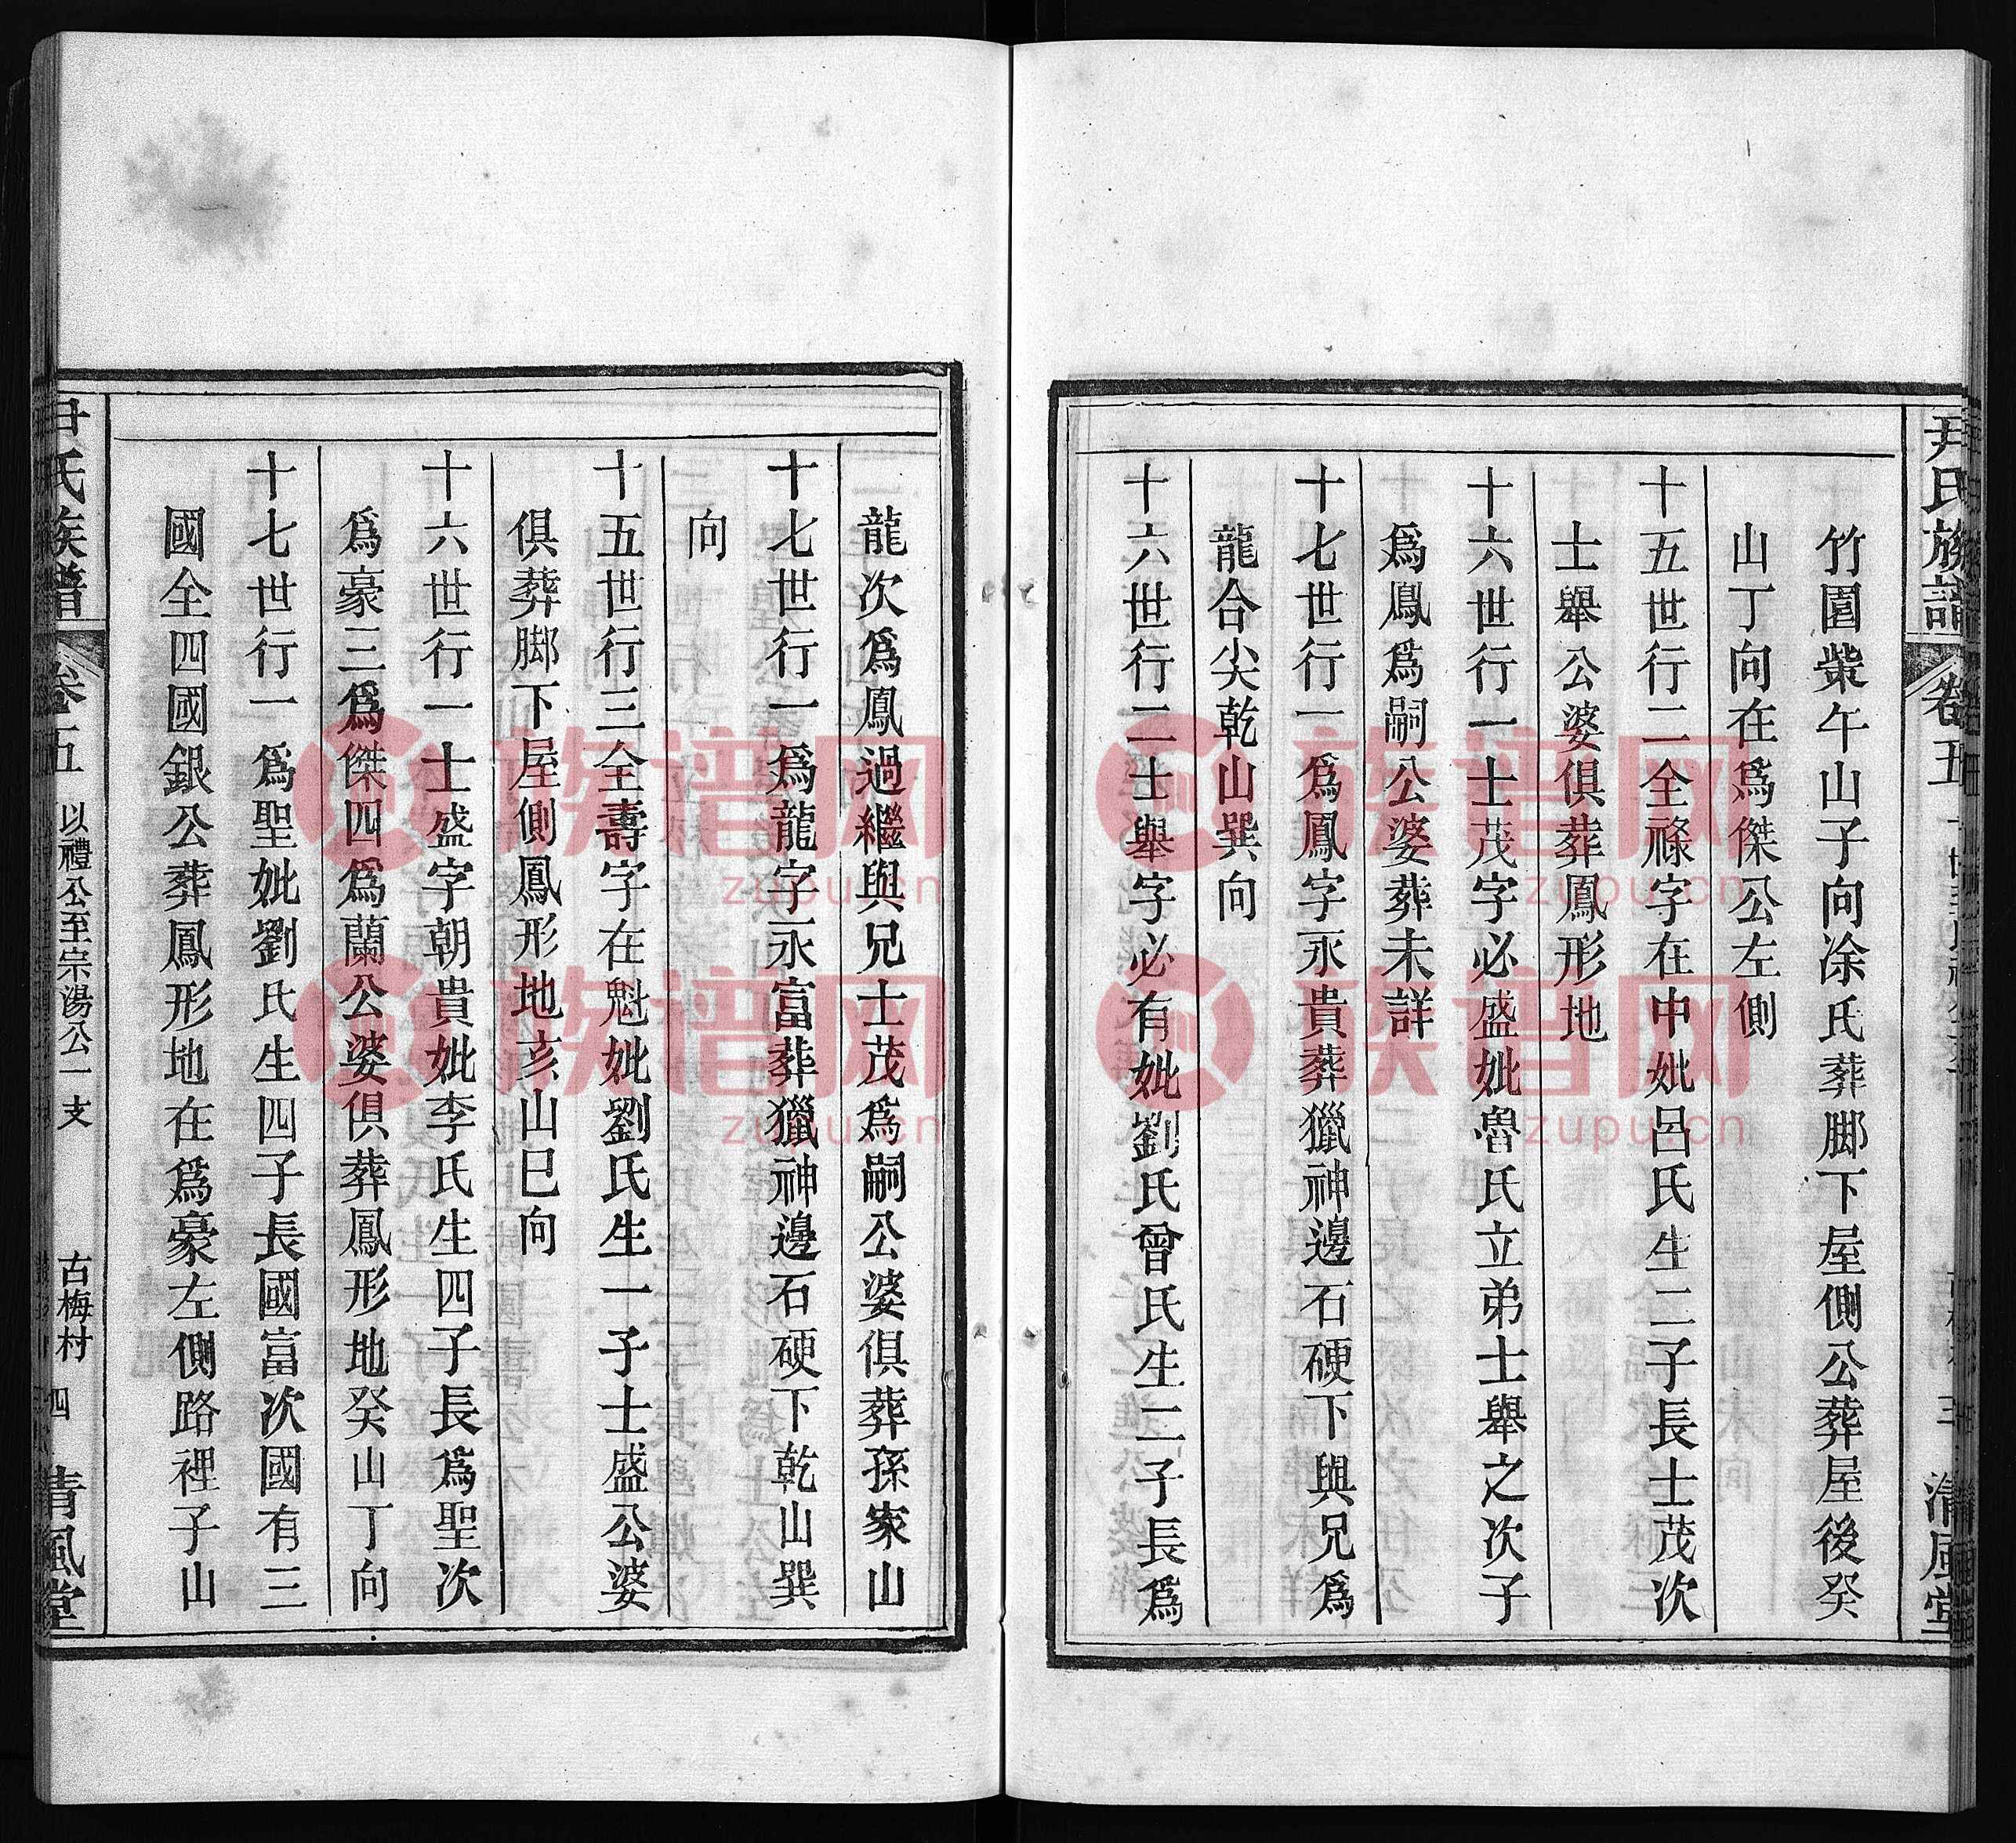 尹氏族譜
卷五
三
清風堂
竹園柴午山子向涂氏葬脚下屋側公葬屋後癸
山丁向在爲傑公左側
十五世行二全祿字在中妣呂氏生二子長士茂次
士舉公婆俱葬鳳形地
十六世行一士茂字必盛妣魯氏立弟士舉之次子
爲鳳爲嗣公婆葬未詳
十七世行一爲鳳字永貴葬獵神邊石硬下與兄爲
龍合尖乾山巽向
十六世行二士舉字必有妣劉氏曾氏生二子長爲
龍次爲鳳過繼與兄士茂爲嗣公婆俱葬孫家山
十七世行一爲龍字永富葬獵神邊石硬下乾山巽
向
十五世行三全壽字在魁妣劉氏生一子士盛公婆
俱葬脚下屋側鳳形地亥山巳向
十六世行一士盛字朝貴妣李氏生四子長爲聖次
爲豪三爲傑四爲蘭公婆俱葬鳳形地癸山丁向
十七世行一爲聖妣劉氏生四子長國富次國有三
國全四國銀公葬鳳形地在爲豪左側路裡子山
尹氏族譜
卷五
以禮公至宗湯公一支
古梅村
四
清風堂
族谱网
zupu.cn
族谱网
zupu.cn
族谱网
zupu.cn
族谱网
zupu.cn